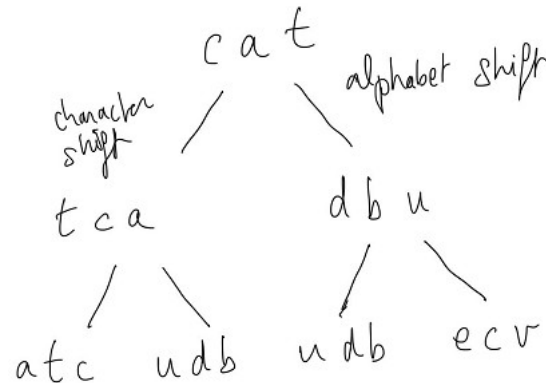 cat
alphabet shift
character
shift
tca dbu
atc udb udb ecv